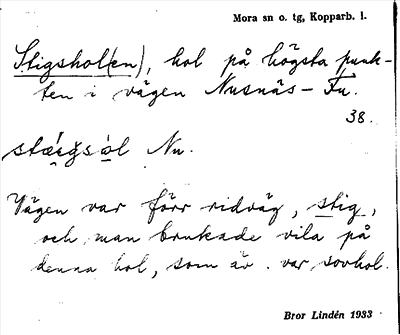 Mora sn o. tg, Kopparb. l.
Stigshol(en), hol på högsta punk-
ten i vägen Nusnäs – Fu.
38.
Nu.
Vägen var förr ridväg, stig,
och man brukade vila på
denna hol, som är. var sovhol.
Bror Lindén 1933